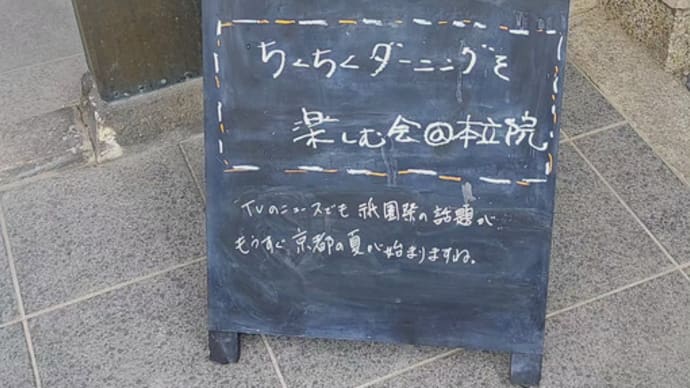 ちくちくダーニングを
楽しむ会@本立院
TVのニュースでも 祇園祭の話題が
もうすぐ 京都の夏が始まりますね。